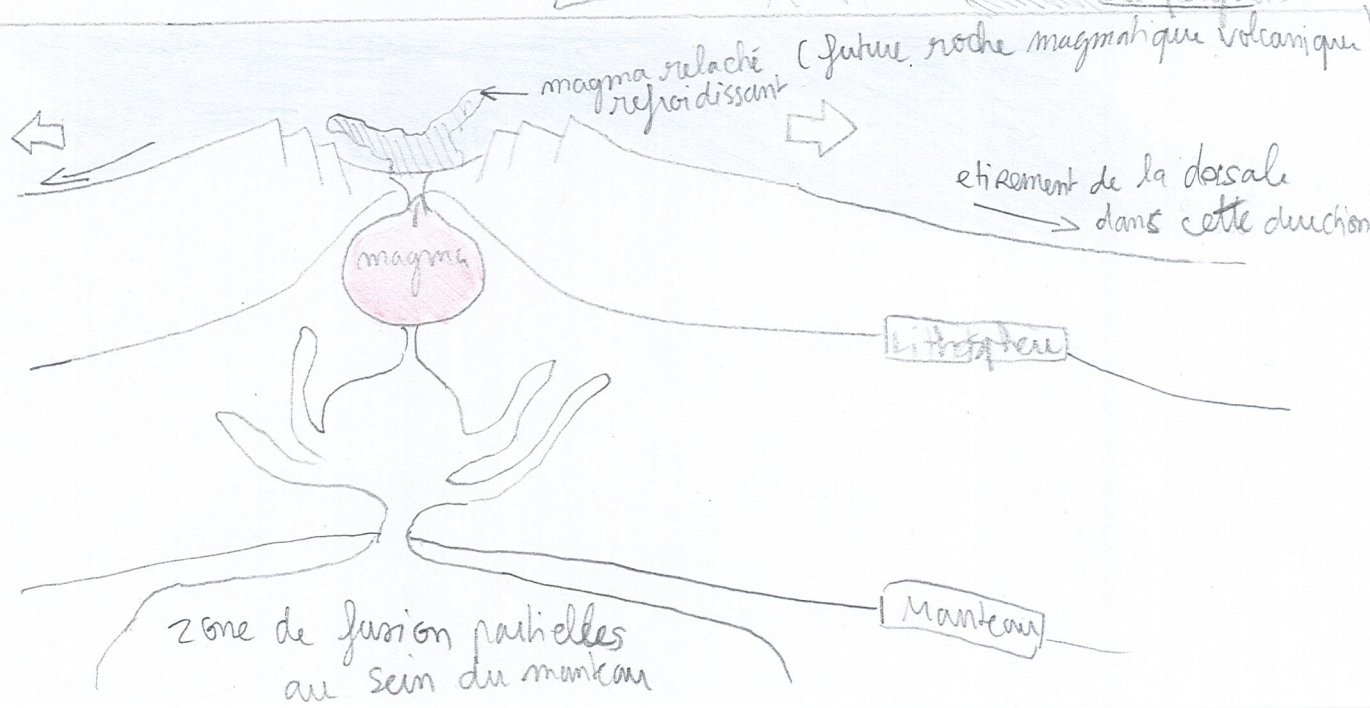 magma relaché (future roche magmatique volcanique
refroidissant
etirement de la dorsale
dans cette direction
magma
Lithosphere
Manteau
zone de fusion partielles
au sein du manteau